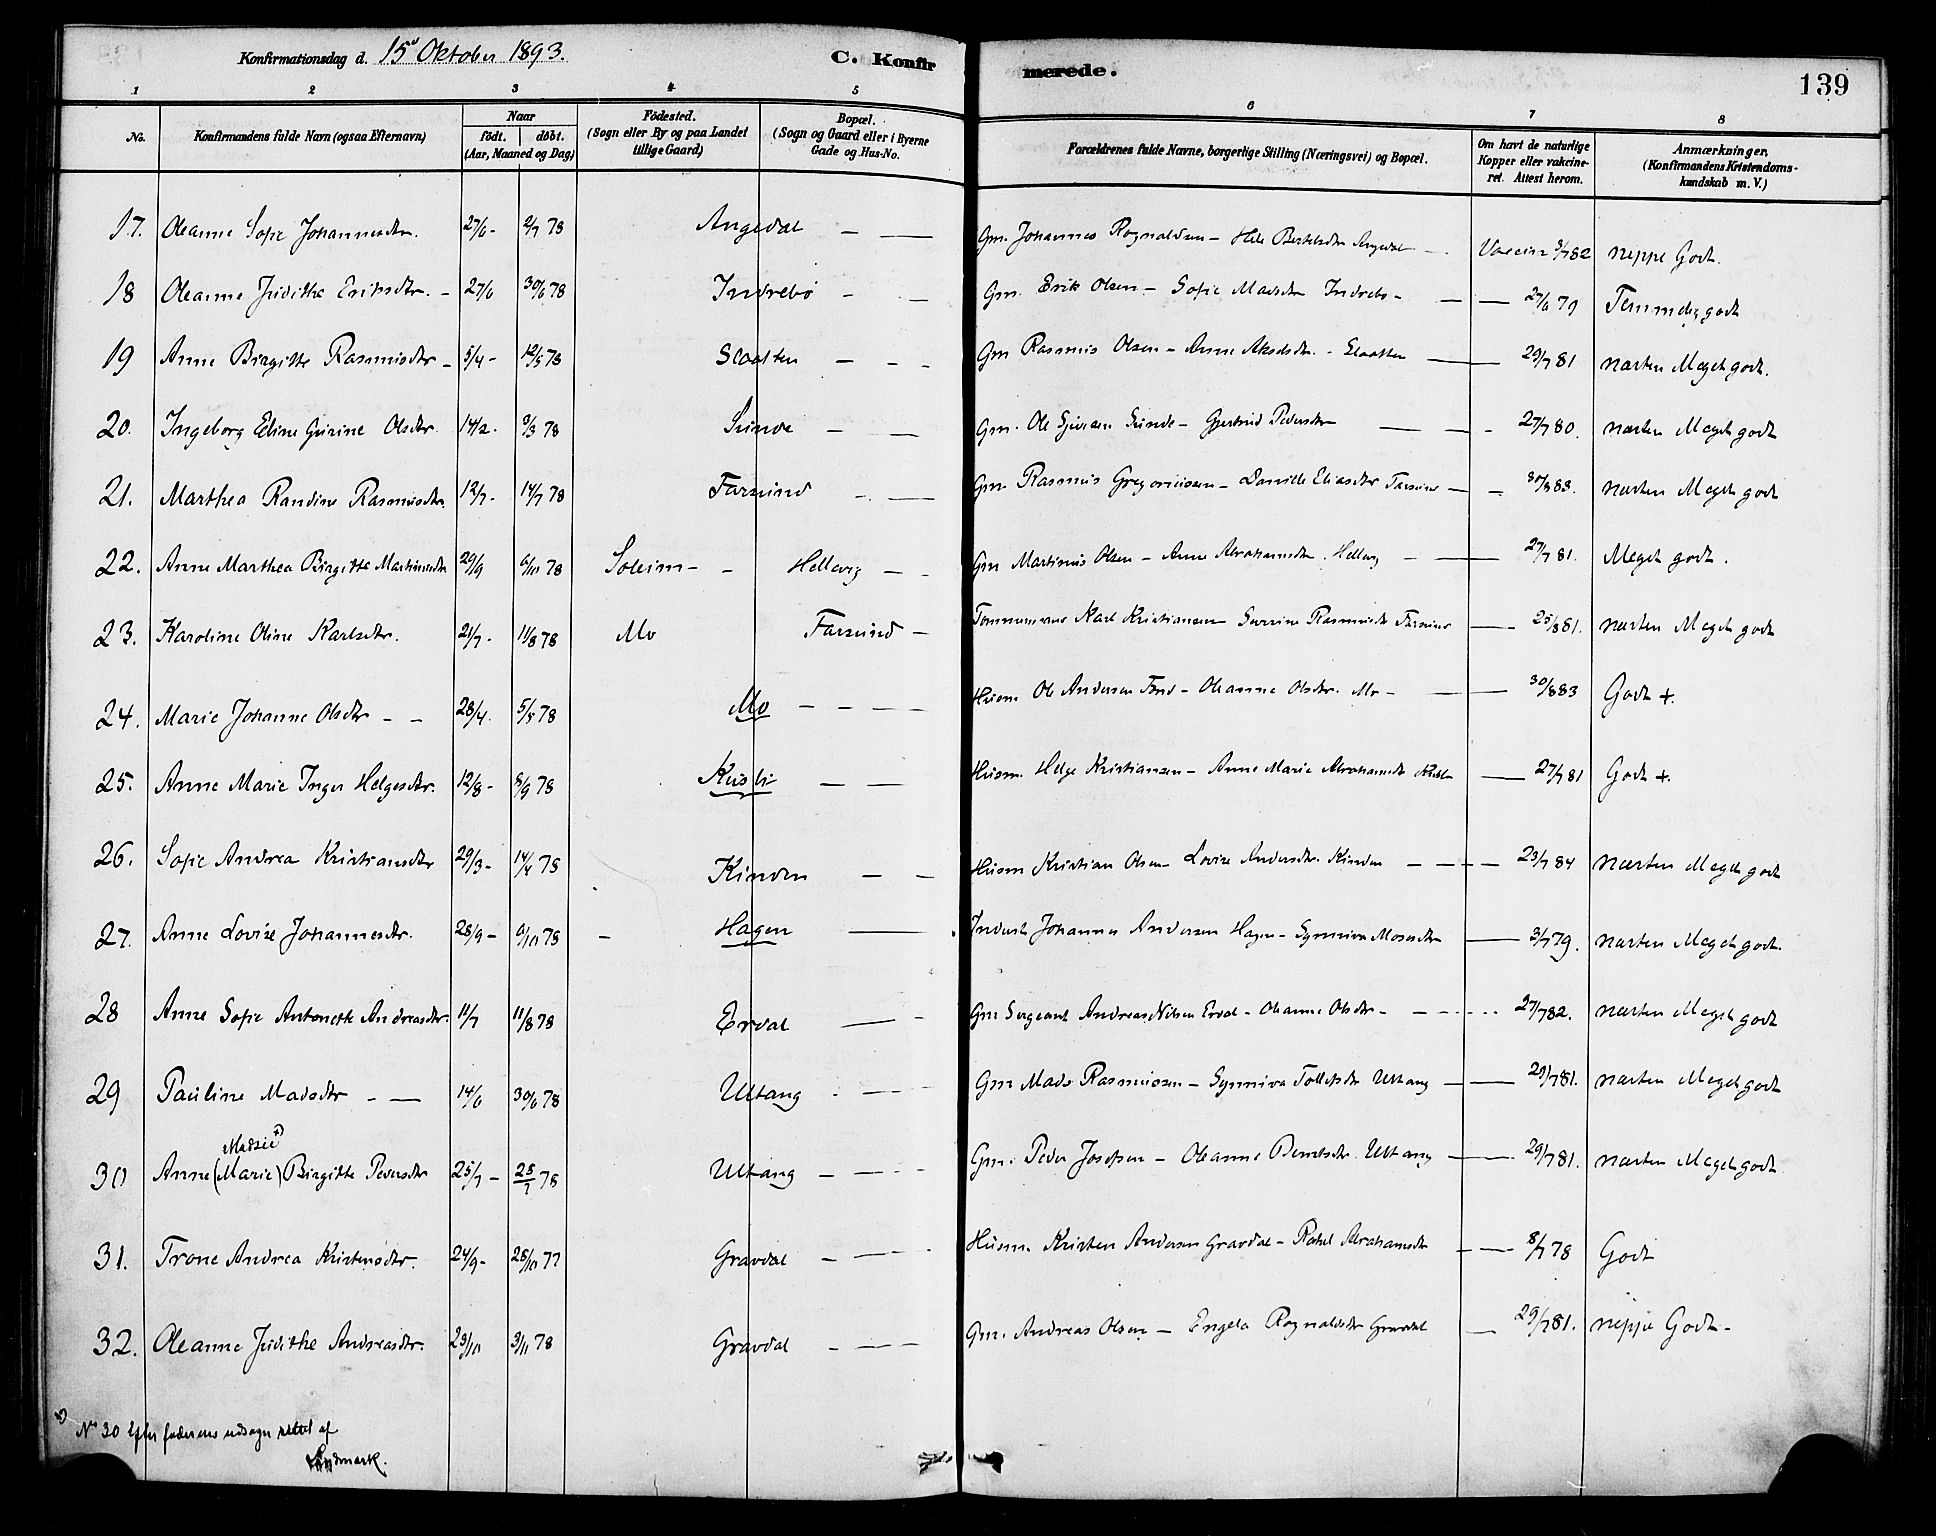 Konfirmationsdag d. 15d Oktober 1893. C. Konfirmerede. 139
1 2 3 4 5 6 7 8
No. Konfirmandens fulde Navn (ogsaa Efternavn) Naar født. døbt. (Aar, Maaned og Dag) Fødested. (Sogn eller By og paa Landet tillige Gaard) Bopæl. (Sogn og Gaard eller i Byerne Gade og Hus-No. Forældrenes fulde Navne, borgerlige Stilling (Næringsvei) og Bopæl. Om havt de naturlige Kopper eller vakcineret. Attest herom. Anmærkninger, (Konfirmandens Kristendomskundskab m. V.)
17. Oleanne Sofie Johannesdtr. 27/6 - 2/7 78 Angedal — — Gm. Johannes Rognaldsen - Bertelsdtr Angedal - Vaccin 3/7 82 neppe Godt.
18 Oleanne Judithe Eriksdtr. - 27/6 30/6 78 Indrebø - - Gm. Erik Olsen - Sofie Madsdtr Indrebø - — — 27/6 79 Temmelig godt
19 Anne Birgitte Rasmusdtr - 5/4 - 12/5 78 Slaatten — - - Gm Rasmus Olsen - Anne Akselsdtr. - Slaatten — — 29/7 81 næsten Meget godt.
20. Ingeborg Eline Gurine Olsdtr. 14/2 - 3/3 78 Sunde - — Gm. Ole Sjursen Sunde - Gjertrud Pedersdtr — — - 27/7 80. næsten Meget godt
21. Marthea Randine Rasmusdtr. 12/7 - 14/7 78 Farsund - — Gm. Rasmus Gregoriussen - Eliasdtr Farsund — - 30/8 83. næsten Meget godt
22. Anne Marthea Birgitte Martinusdtr 29/9 6/10 78 Soleim - - Hellevig — - Gm Martinus Olsen - Anne Abrahamsdtr. Hellevig — — 27/7 81. Meget godt.
23. Karoline Oline Karlsdtr. 21/7 - 11/8 78 Mo Farsund - Karl Kristiansen Severine Rasmusdtr Farsund — 25/8 81. næsten Meget godt
24. Marie Johanne Olsdtr - - 28/4. 5/5 78 Mo - - - — Husm. Ole Andersen - Oleanne Olsdtr. Mo - — — 30/8 83 Godt +.
25. Anne Marie Inger Helgesdtr. 12/8 - 8/9 78 Kusli — — Husm. Helge Kristiansen - Anne Marie Abrahamsdtr — 27/7 81 Godt +.
26. Sofie Andrea Kristiansdtr 29/3 - 14/4 78 Kinden — - Husm Kristian Olsen - Lovise Andersdtr. Kinden — — - — 23/7 84 næsten Meget godt
27. Anne Lovise Johannesdtr. 28/9 - 6/10 78 - Hagen — Johannes Andersen Hagen - Synneva Mosesdtr — 3/7 79. næsten Meget godt.
28 Anne Sofie Antonette Andreasdtr. 11/7 11/8 78 Erdal — - Gm Sergeant Andreas Nilsen Erdal - Oleanne Olsdtr - — - - - 27/7 82. næsten Meget godt
29 Pauline Madsdtr - — 14/6 30/6 78 Ultang - — - Gm Mads Rasmussen - Synneva Tollefsdtr Ultang — — 29/7 81. næsten Meget godt
Madzie +)
30 Anne (Marie) Birgitte Pedersdtr 25/7 - 28/7 78 Ultang - — - Gm. Peder Josefsen - Oleanne Berntsdtr. Ultang — — 29/7 81. næsten Meget godt
31. Trone Andrea Kristensdtr. 24/9 - 28/10 77 Gravdal - — - Husm. Kristen Andersen Gravdal - Rakel Abrahamsdtr - — 8/7 78 Godt
32. Oleanne Judithe Andreasdtr. 23/10 3/11 78 Gravdal - — - Gm. Andreas Olsen — Engela Rognaldsdtr Gravdal — 29/7 81. neppe Godt -
+) No 30 Efter faderens udsagn rettet af
Landmark.